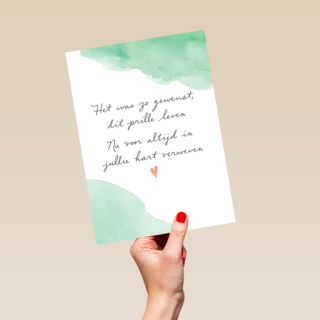 Het was zo gewenst,
dit prille leven
Nu voor altijd in
jullie hart verweven